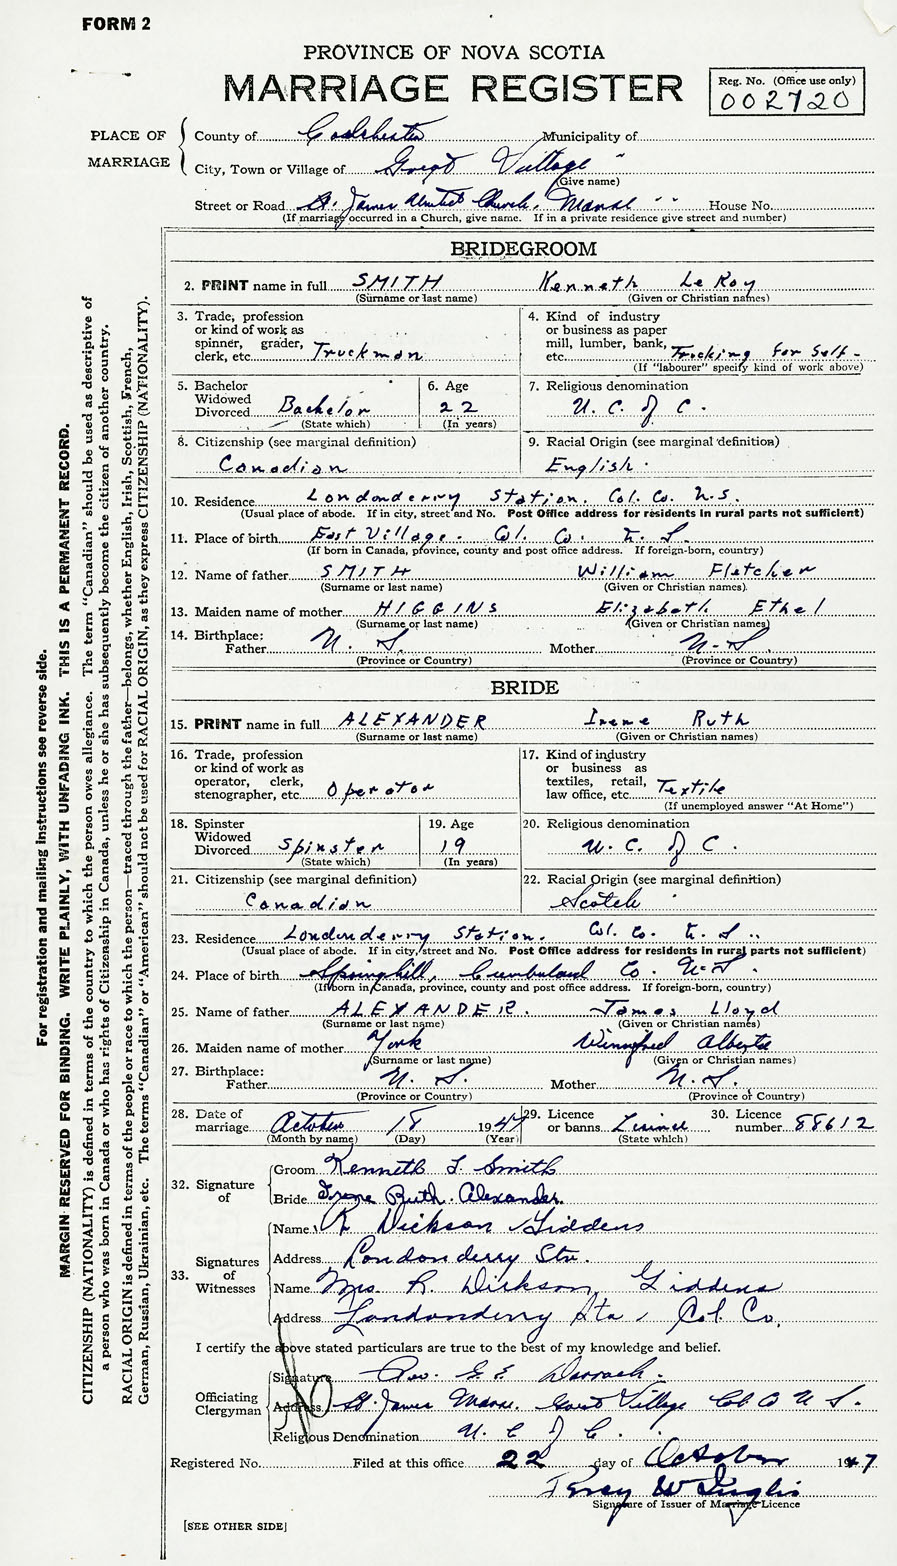 FORM 2
PROVINCE OF NOVA SCOTIA
MARRIAGE REGISTER
Reg. No. (Office use only)
002720
PLACE OF MARRIAGE
County of Colchester Municipality of
City, Town or Village of Great Village "
(Give name)
Street or Road St. James Church, Manse " " House No.
(If marriage occurred in a Church, give name. If in a private residence give street and number)
BRIDEGROOM
2. PRINT name in full SMITH Kenneth LeRoy
(Surname or last name) (Given or Christian names)
3. Trade, profession or kind of work as spinner, grader, clerk, etc. Truckman
4. Kind of industry or business as paper mill, lumber, bank, etc. Trucking for Self -
(If "labourer" specify kind of work above)
5. Bachelor Widowed Divorced Bachelor
(State which)
6. Age 22
(In years)
7. Religious denomination U. C. of C.
8. Citizenship (see marginal definition) Canadian
9. Racial Origin (see marginal definition) English.
10. Residence Londonderry Station. Col. Co. N.S.
(Usual place of abode. If in city, street and No. Post Office address for residents in rural parts not sufficient)
11. Place of birth East Village. Col. Co. N. S.
(If born in Canada, province, county and post office address. If foreign-born, country)
12. Name of father SMITH William Fletcher
(Surname or last name) (Given or Christian names)
13. Maiden name of mother HIGGINS Elizabeth Ethel
(Surname or last name) (Given or Christian names)
14. Birthplace: Father N. S. Mother N. S.
(Province or Country) (Province or Country)
BRIDE
15. PRINT name in full ALEXANDER Irene Ruth
(Surname or last name) (Given or Christian names)
16. Trade, profession or kind of work as operator, clerk, stenographer, etc. Operator
17. Kind of industry or business as textiles, retail, law office, etc. Textile
(If unemployed answer "At Home")
18. Spinster Widowed Divorced Spinster
(State which)
19. Age 19
(In years)
20. Religious denomination U. C. of C.
21. Citizenship (see marginal definition) Canadian
22. Racial Origin (see marginal definition) Scotch
23. Residence Londonderry Station. Col. Co. N. S.
(Usual place of abode. If in city, street and No. Post Office address for residents in rural parts not sufficient)
24. Place of birth Springhill, Cumberland Co. N. S.
(If born in Canada, province, county and post office address. If foreign-born, country)
25. Name of father ALEXANDER. James Lloyd
(Surname or last name) (Given or Christian names)
26. Maiden name of mother York Winnifred Alberta
(Surname or last name) (Given or Christian names)
27. Birthplace: Father N. S. Mother N. S.
(Province or Country) (Province or Country)
28. Date of marriage October 18 1947
(Month by name) (Day) (Year)
29. Licence or banns License
(State which)
30. Licence number 88612
32. Signature of
Groom Kenneth L Smith
Bride Irene Ruth Alexander
33. Signatures of Witnesses
Name R Dickson Giddens
Address Londonderry Sta.
Name Mrs. R. Dickson Giddens
Address Londonderry Sta, Col. Co.
I certify the above stated particulars are true to the best of my knowledge and belief.
Officiating Clergyman
Signature Rev. G. E. Darrach
Address St. James Manse. Great Village Col Co N. S.
Religious Denomination U. C of C.
Registered No. Filed at this office 22 day of October 1947
Percy W
Signature of Issuer of Marriage Licence
[SEE OTHER SIDE]
For registration and mailing instructions see reverse side.
MARGIN RESERVED FOR BINDING. WRITE PLAINLY, WITH UNFADING INK. THIS IS A PERMANENT RECORD.
CITIZENSHIP (NATIONALITY) is defined in terms of the country to which the person owes allegiance. The term "Canadian" should be used as descriptive of
a person who was born in Canada or who has rights of Citizenship in Canada, unless he or she has subsequently become the citizen of another country.
RACIAL ORIGIN is defined in terms of the people or race to which the person—traced through the father—belongs, whether English, Irish, Scottish, French,
German, Russian, Ukrainian, etc. The terms "Canadian" or "American" should not be used for RACIAL ORIGIN, as they express CITIZENSHIP (NATIONALITY).